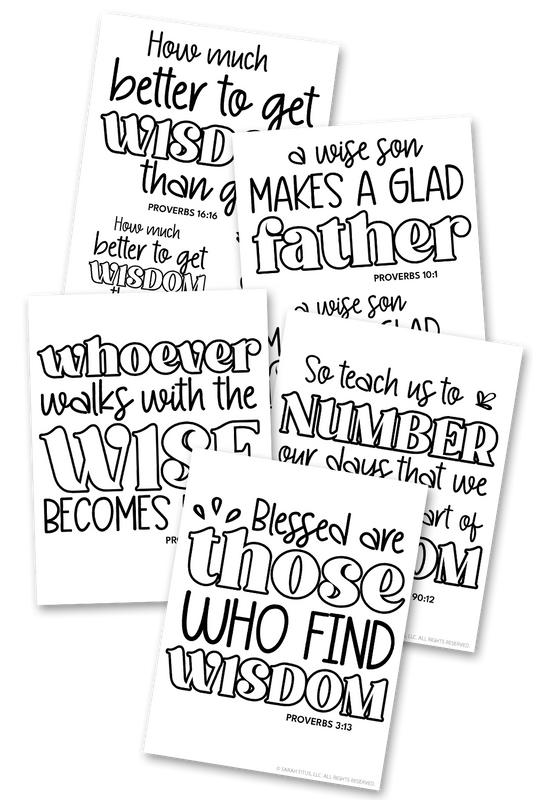 How much
better to get
WISD
than g
PROVERBS 16:16
How much
better to get
WISDOM
a wise son
MAKES A GLAD
father
PROVERBS 10:1
a wise son
GLAD
whoever
walks with the
WISE
BECOMES
So teach us to
NUMBER
our days that we
art of
DOM
90:12
LLC. ALL RIGHTS RESERVED.
Blessed are
those
WHO FIND
WISDOM
PROVERBS 3:13
© SARAH TITUS, LLC. ALL RIGHTS RESERVED.